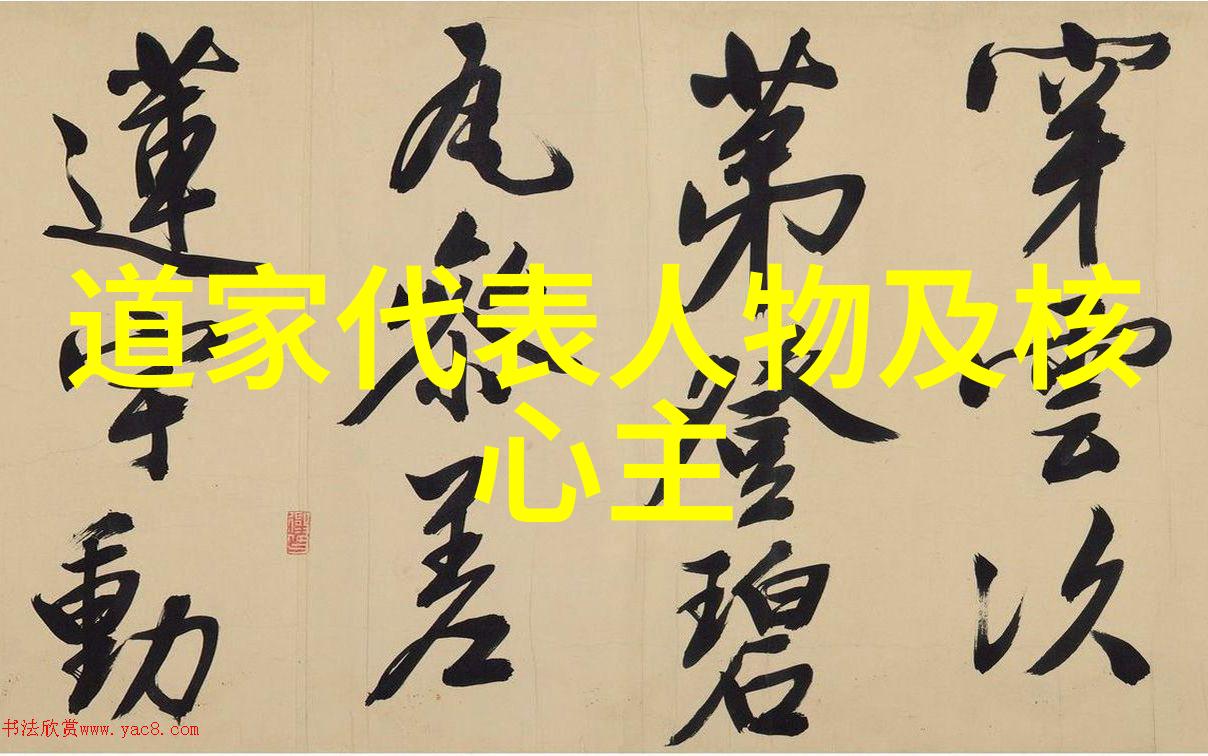 穿雲次
第登碧
瓦參差
蓮宇動
道家代表人物及核
心主
书法欣赏www.yac8.com